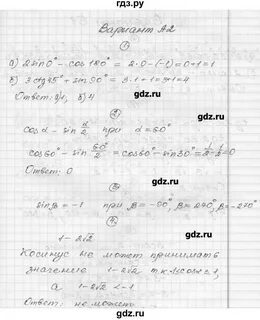 gdz.ru
Вариант А2
①
а) 2 sin 0° - cos 180° = 2·0-(-1)=0+1=1
б) 3 ctg 45° + sin 90° = 3·1+1=3+1=4
Ответ: а) 1, б) 4
gdz.ru gdz.ru
②
cos α - sin α/2 при α=60°
cos 60° - sin 60°/2 = cos 60° - sin 30° = 1/2 - 1/2 = 0
Ответ: 0
gdz.ru gdz.ru
③
sin β = -1 β = -90°, β = 270°,
④
1-2√2
Косинус не может принимать
значение 1-2√2 т.к.
gdz.ru gdz.ru
а 1-2√2 < -1
Ответ: не может
gdz.ru